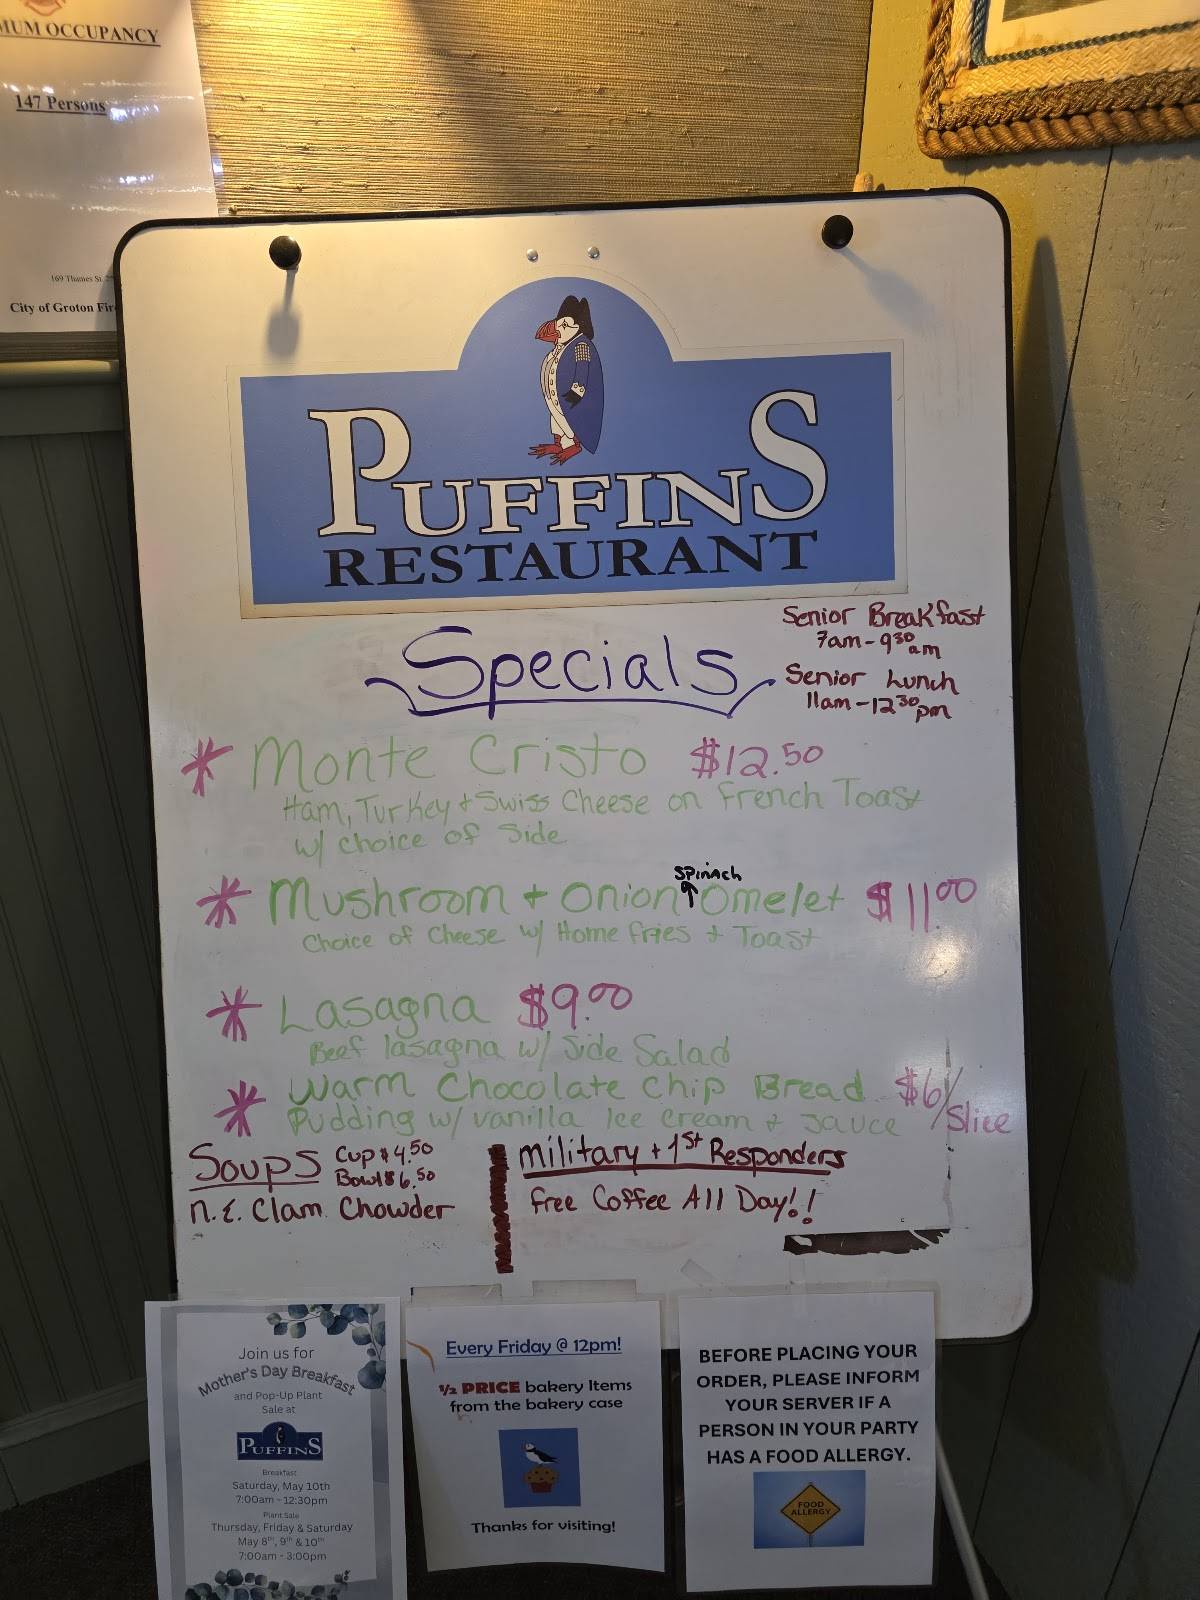 MUM OCCUPANCY
147 Persons
169 Thames St.
City of Groton Fir
PUFFINS
RESTAURANT
Specials
Senior Breakfast
7am-9:30 am
Senior Lunch
11am-12:30 pm
* Monte Cristo $12.50
Ham, Turkey + Swiss Cheese on French Toast
w/ choice of side
spinach
* Mushroom + Onion ↑ Omelet $11.00
Choice of Cheese w/ Home fries + Toast
* Lasagna $9.00
Beef lasagna w/ Side Salad
* Warm Chocolate Chip Bread $6/Slice
Pudding w/ vanilla Ice Cream + Sauce
Soups Cup $4.50
Bowl $6.50
N.E. Clam Chowder
Military + 1st Responders
Free Coffee All Day!!
Join us for
Mother's Day Breakfast
and Pop-Up Plant
Sale at
PUFFINS
Breakfast
Saturday, May 10th
7:00am - 12:30pm
Plant Sale
Thursday, Friday & Saturday
May 8th, 9th & 10th
7:00am - 3:00pm
Every Friday @ 12pm!
1/2 PRICE bakery Items
from the bakery case
Thanks for visiting!
BEFORE PLACING YOUR
ORDER, PLEASE INFORM
YOUR SERVER IF A
PERSON IN YOUR PARTY
HAS A FOOD ALLERGY.
FOOD
ALLERGY